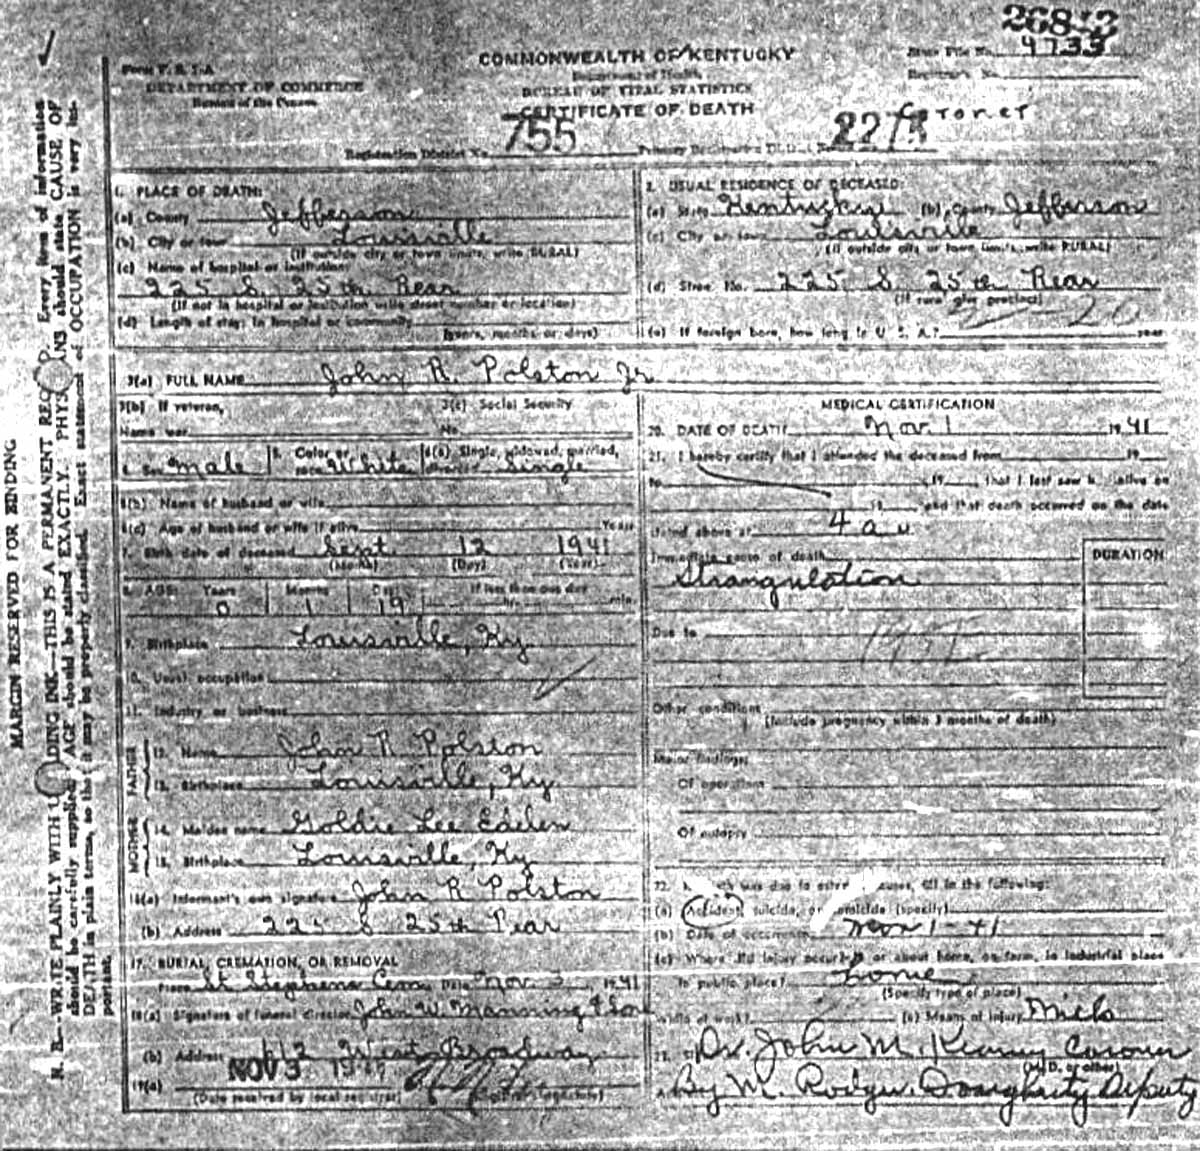 26842
State File No. 4733
Form V. S. 1-A
COMMONWEALTH OF KENTUCKY
DEPARTMENT OF COMMERCE
Bureau of the Census
Department of Health
BUREAU OF VITAL STATISTICS
CERTIFICATE OF DEATH
Registrar's No.
Coroner
Registration District No. 755
Primary Registration District No. 2278
MARGIN RESERVED FOR BINDING
N. B.—WRITE PLAINLY WITH UNFADING INK—THIS IS A PERMANENT RECORD. Every item of information
should be carefully supplied. AGE should be stated EXACTLY. PHYSICIANS should state CAUSE OF
DEATH in plain terms, so that it may be properly classified. Exact statement of OCCUPATION is very im-
portant.
1. PLACE OF DEATH:
(a) County Jefferson
(b) City or town Louisville
(If outside city or town limits, write RURAL)
(c) Name of hospital or institution:
225 S. 25th Rear
(If not in hospital or institution write street number or location)
(d) Length of stay: In hospital or community
(years, months or days)
2. USUAL RESIDENCE OF DECEASED:
(a) State Kentucky (b) County Jefferson
(c) City or town Louisville
(If outside city or town limits, write RURAL)
(d) Street No. 225 S. 25th Rear
(If rural give precinct)
(e) If foreign born, how long in U. S. A.? year
3(a) FULL NAME John R. Polston Jr.
3(b) If veteran,
Name war
3(c) Social Security
No.
4. Sex Male
5. Color or
race White
6(a) Single, widowed, married,
divorced Single
6(b) Name of husband or wife
6(c) Age of husband or wife if alive Years
7. Birth date of deceased Sept. 12 1941
(Month) (Day) (Year)
8. AGE: Years Months Days If less than one day
0 1 19 hr. min.
9. Birthplace Louisville, Ky
10. Usual occupation
11. Industry or business
FATHER
12. Name John R Polston
13. Birthplace Louisville, Ky
MOTHER
14. Maiden name Goldie Lee Edelen
15. Birthplace Louisville, Ky
16(a) Informant's own signature John R Polston
(b) Address 225 S 25th Rear
17. BURIAL, CREMATION, OR REMOVAL
Place St Stephens Cem. Date Nov. 3, 1941
18(a) Signature of funeral director John W Manning & Son
(b) Address 1612 West Broadway
19(a) NOV 3 194
(Date received by local registrar)
MEDICAL CERTIFICATION
20. DATE OF DEATH Nov. 1 1941
21. I hereby certify that I attended the deceased from 19
to , 19 , that I last saw h alive on
19 , and that death occurred on the date
stated above at 4 a m
Immediate cause of death
Strangulation
DURATION
Due to
Other conditions
(Include pregnancy within 3 months of death)
Major findings:
Of operations
Of autopsy
22. If death was due to external causes, fill in the following:
(a) Accident, suicide, or homicide (specify)
(b) Date of occurrence Nov 1-41
(c) Where did injury occur in or about home, on farm, in industrial place
in public place? home
(Specify type of place)
While at work? (e) Means of injury Milk
23. Dr. John M. Keaney Coroner
(M. D. or other)
By M. Rodger Dougherty Deputy